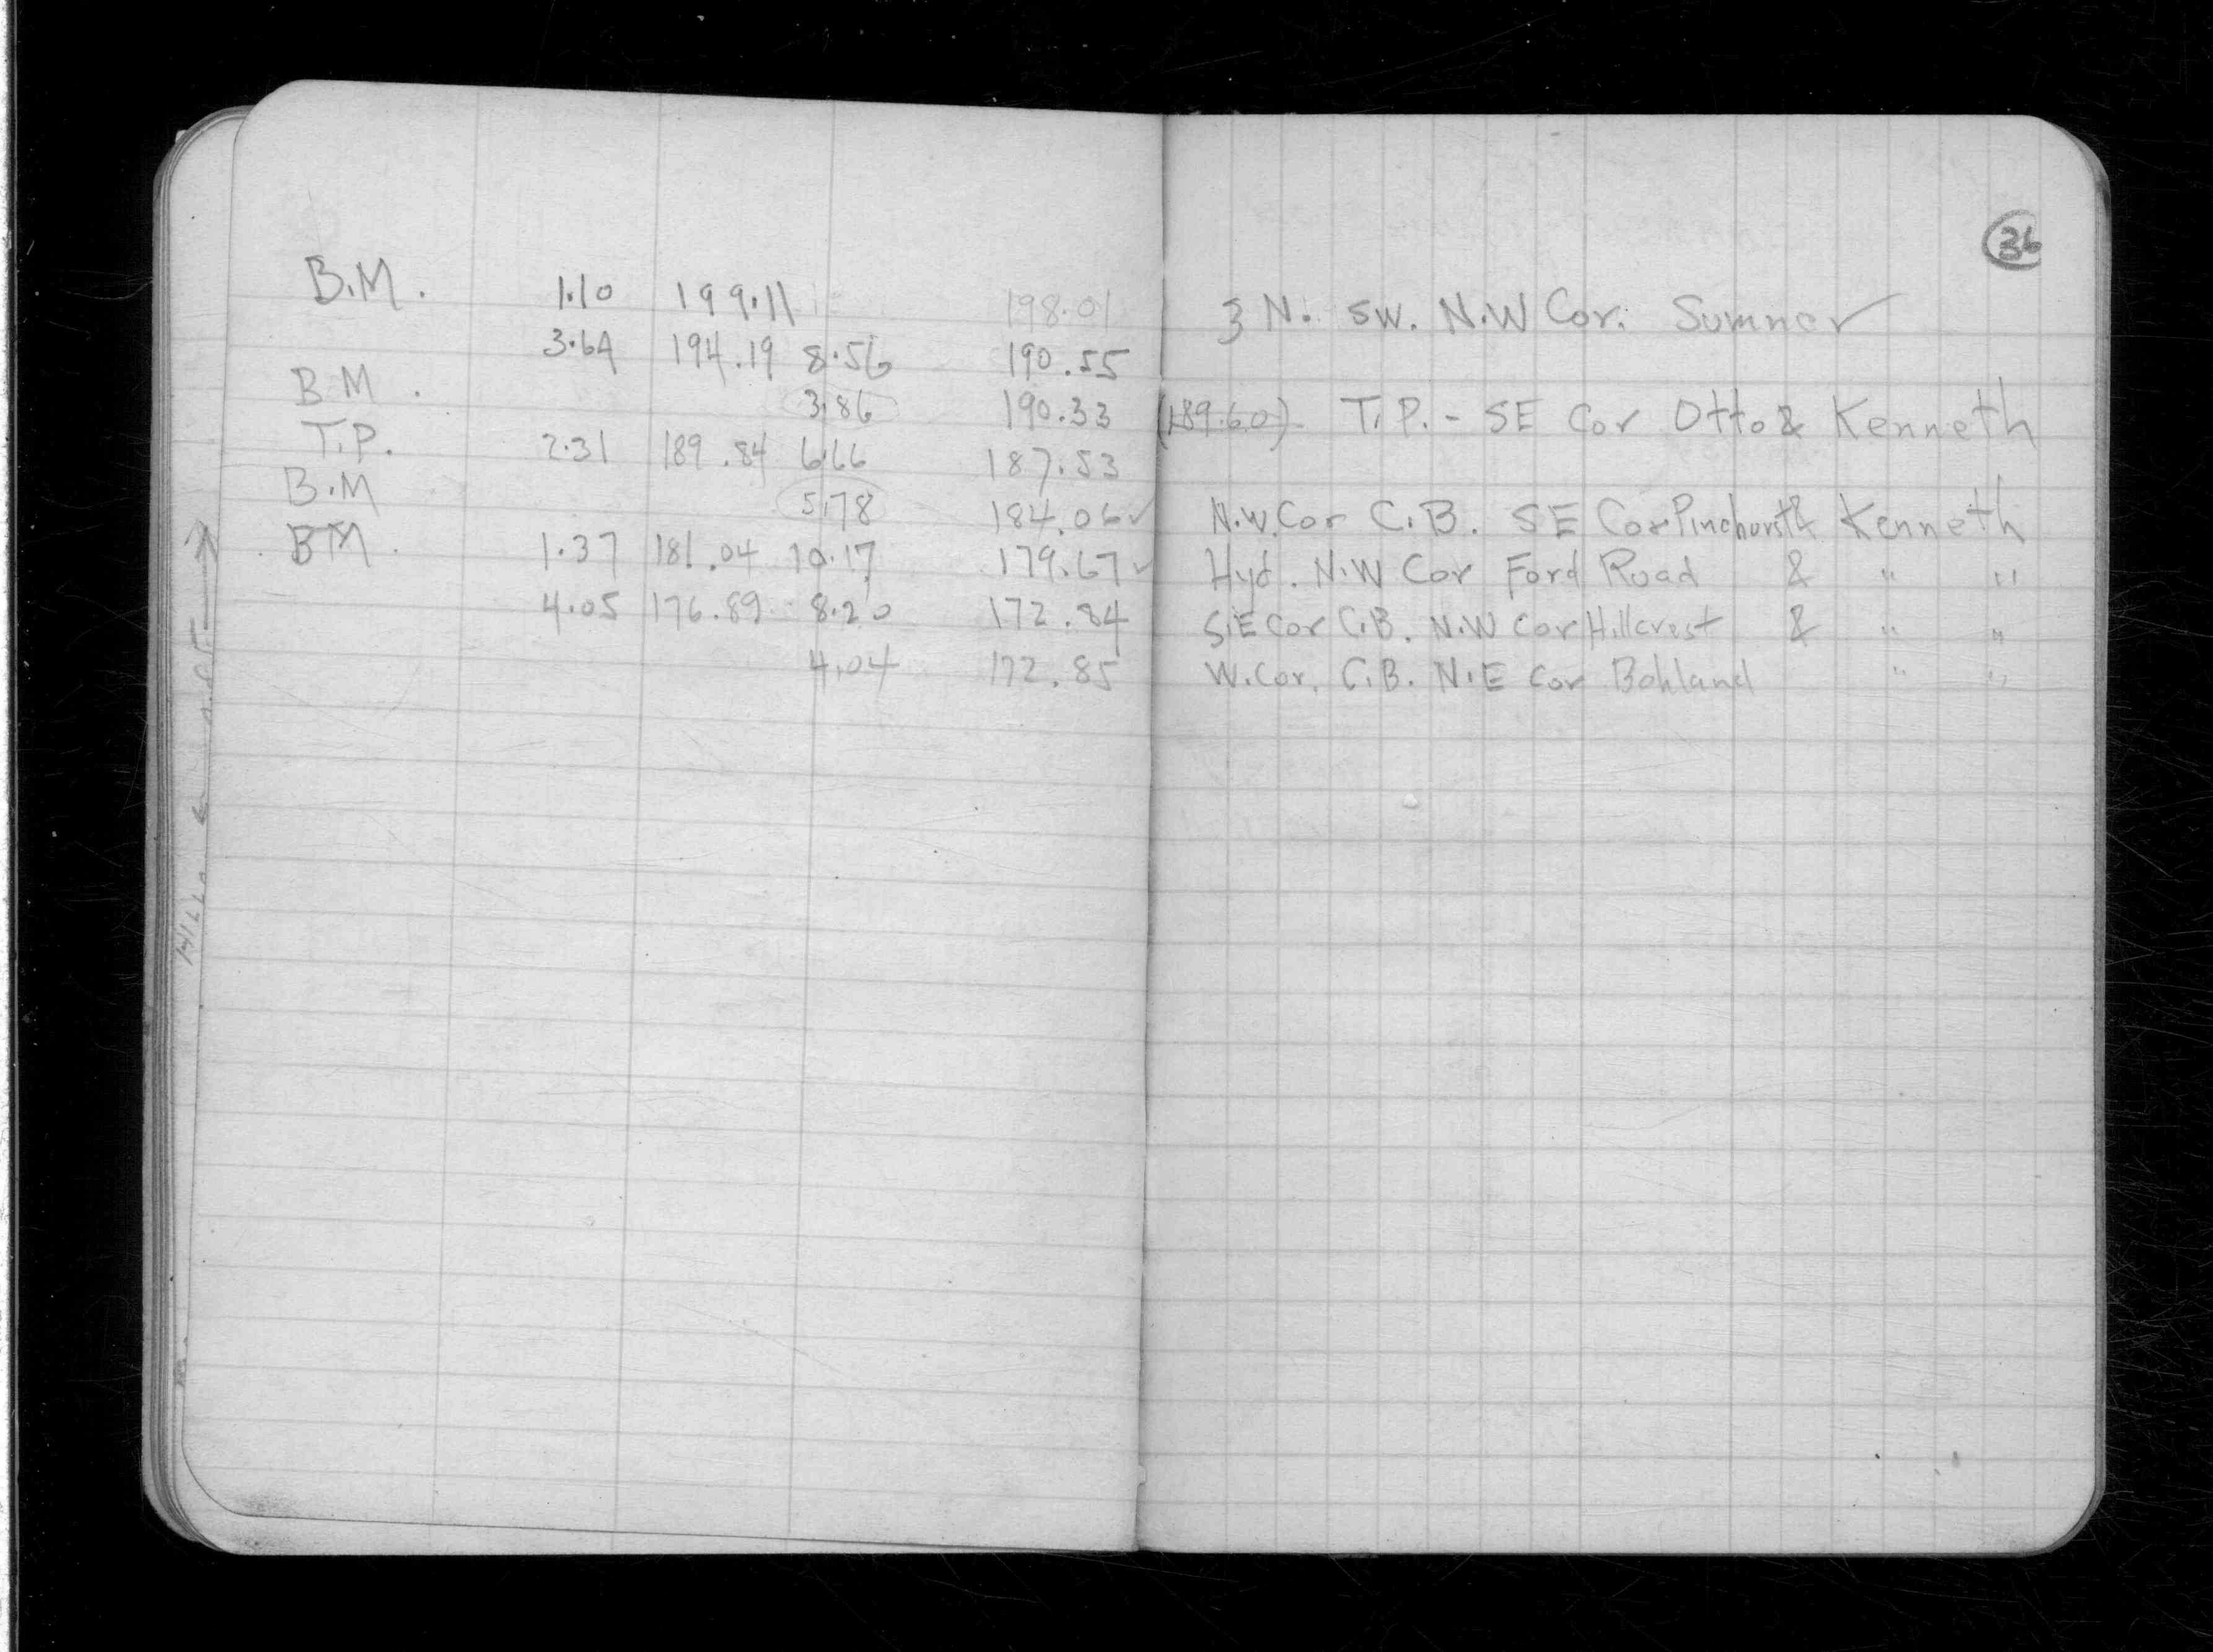 36
B.M. 1.10 199.11 198.01 3 N. SW. N.W Cor. Sumner
3.64 194.19 8.56 190.55
B M. 3.86 190.33 (189.60) T.P. - SE Cor Otto & Kenneth
T.P. 2.31 189.84 6.66 187.53
B.M 5.78 184.06✓ N.W. Cor C.B. SE Cor Pinehurst & Kenneth
BM. 1.37 181.04 10.17 179.67✓ Hyd. N.W Cor Ford Road & " "
4.05 176.89 8.20 172.84 S.E Cor C.B. N.W Cor Hillcrest & " "
4.04 172.85 W. Cor. C.B. N.E Cor Bohland " "